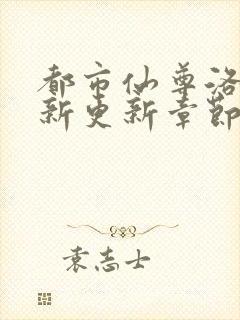 都市仙尊洛
新更新章節
袁志士